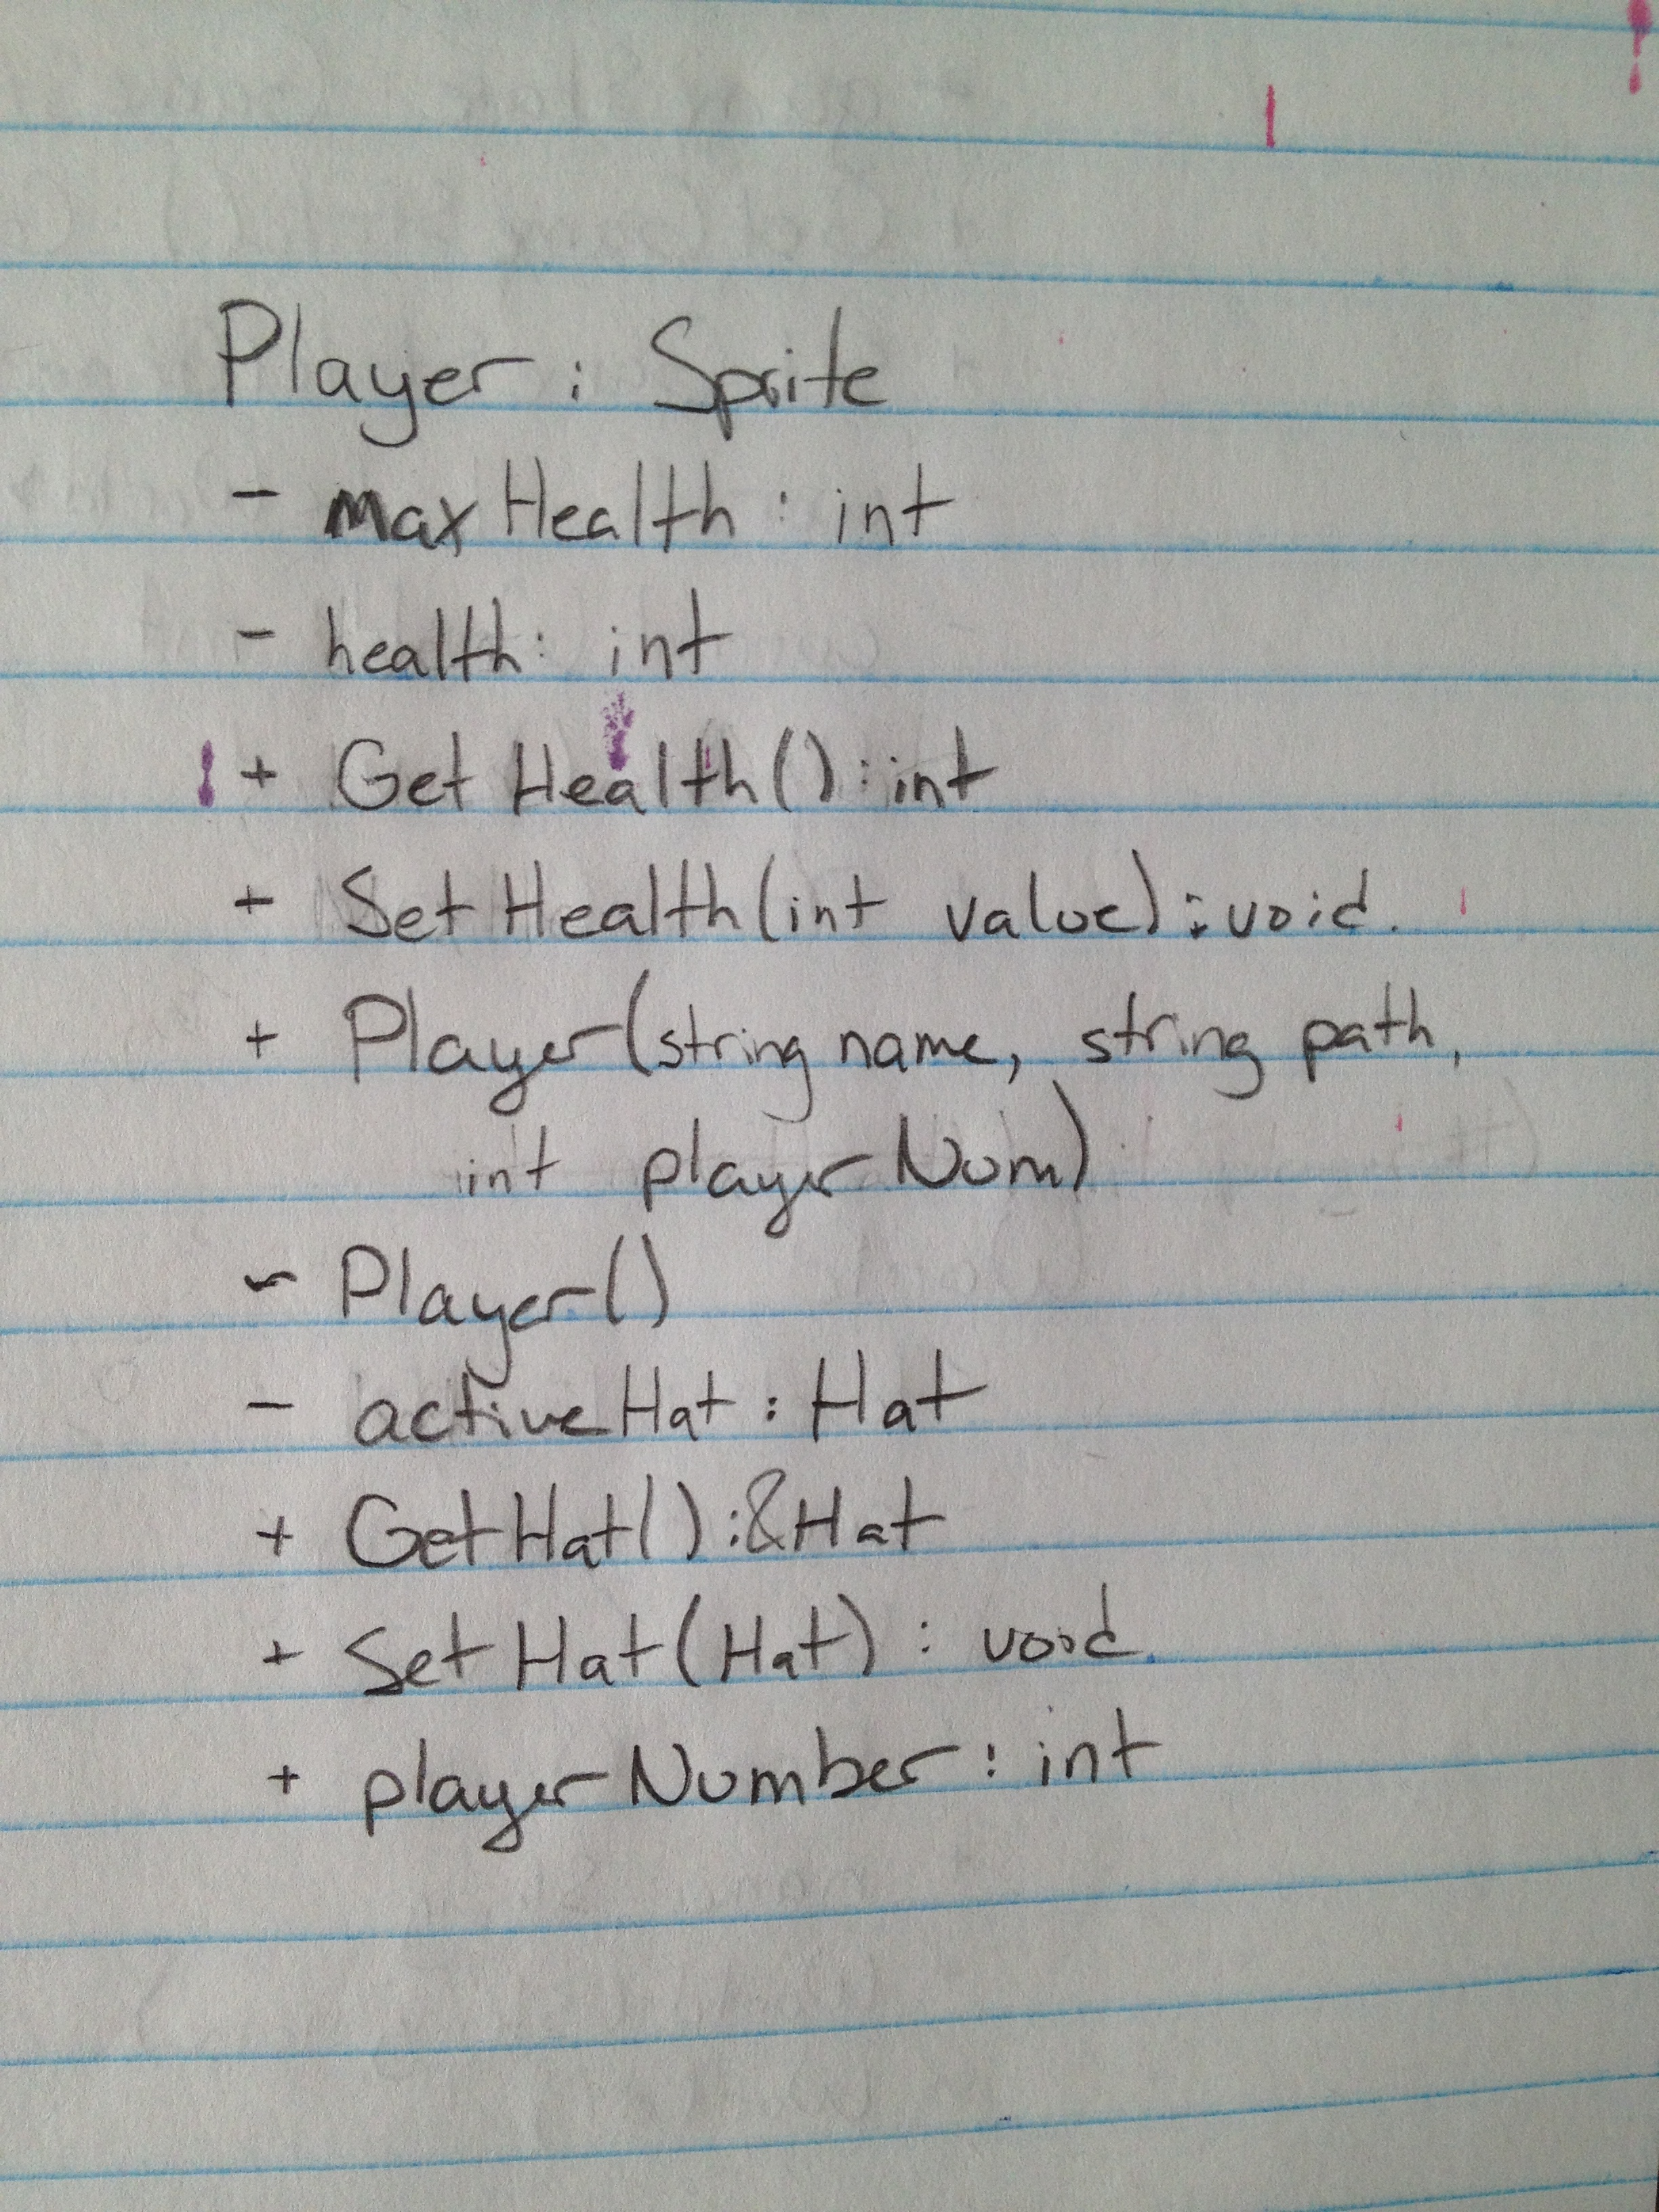 Player : Sprite
- maxHealth : int
- health : int
+ GetHealth() : int
+ SetHealth(int value) : void.
+ Player(string name, string path,
int playerNum)
- Player()
- activeHat : Hat
+ GetHat() : &Hat
+ SetHat(Hat) : void
+ playerNumber : int